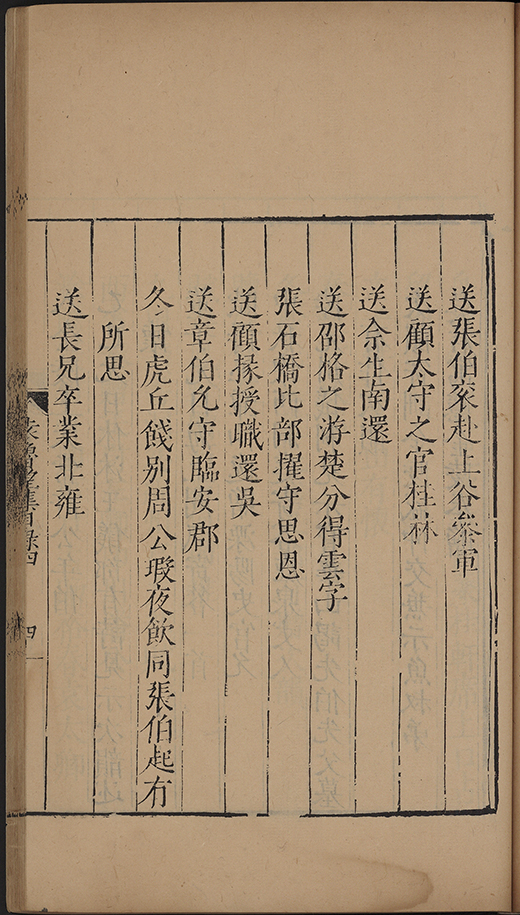 送張伯來赴上谷叅軍
送顧太守之官桂林
送余生南還
送邵格之游楚分得雲字
張石橋比部擢守思恩
送顧掾授職還吳
送章伯允守臨安郡
冬日虎丘餞別周公瑕夜飲同張伯起有
所思
送長兄卒業北雍
集目録四
四